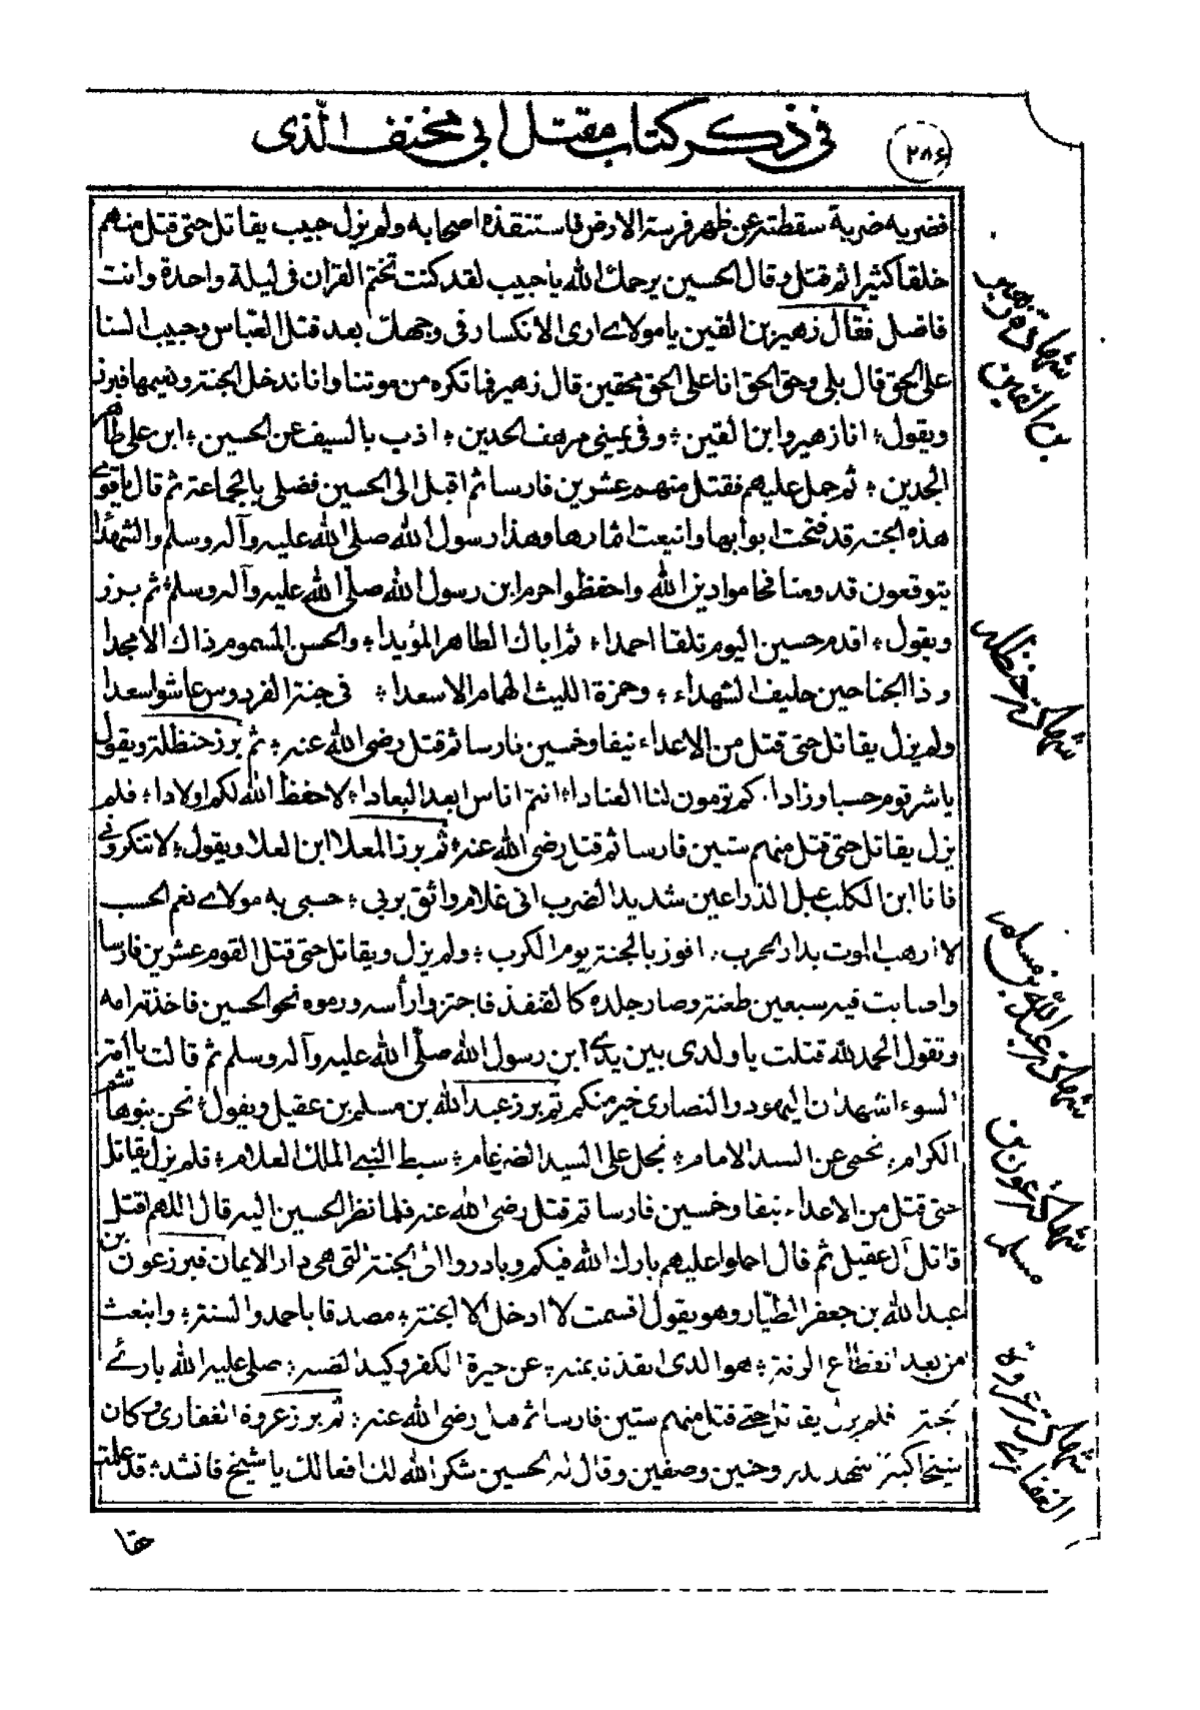 في ذكر كتاب مقتل ابي مخنف الذي
٢٨٦
فضربه ضربة سقطته عن ظهر فرسه الارض فاستنقذه اصحابه ولم يزل حبيب يقاتل حتى قتل منهم
خلقا كثيرا ثم قتل وقال الحسين يرحمك الله يا حبيب لقد كنت تختم القران في ليلة واحدة وانت
فاضل فقال زهير بن القين يا مولاى ارى الانكسار في وجهك بعد قتل العباس وحبيب السنا
على الحق قال بلى وحق الحق انا على الحق محقين قال زهير فما تكره من موتنا وانا ندخل الجنة ونعيمها فبرز
ويقول؛ انا زهير وابن القين؛ وفي يميني مرهف الحدين؛ اذب بالسيف عن الحسين؛ ابن على طاهر
الجدين؛ ثم حمل عليهم فقتل منهم عشرين فارسا ثم اقبل الى الحسين فصلى بالجماعة ثم قال يا قوم
هذه الجنة قد فتحت ابوابها واينعت اثمارها وهذا رسول الله صلى الله عليه وآله وسلم والشهداء
يتوقعون قدومنا فحاموا دين الله واحفظوا حرم ابن رسول الله صلى الله عليه وآله وسلم؛ ثم برز
ويقول؛ اقدم حسين اليوم تلقا احمدا؛ ثم اباك الطاهر المؤيدا؛ والحسن المسموم ذاك الامجدا
وذا الجناحين حليف الشهداء؛ وحمزة الليث الهمام الاسعدا؛ في جنة الفردوس عاشوا سعدا
ولم يزل يقاتل حتى قتل من الاعداء نيفا وخمسين فارسا ثم قتل رضى الله عنه؛ ثم برز حنظلة ويقول
يا شر قوم حسبا وزادا. كم ترمون لنا العنادا؛ انتم اناس ابعد البعادا؛ لا حفظ الله لكم اولادا؛ فلم
يزل يقاتل حتى قتل منهم ستين فارسا ثم قتل رضى الله عنه؛ ثم برز المعلا ابن العلا ويقول؛ لا تنكروني
فانا ابن الكلب عبل الذراعين شديد الضرب انى غلام واثق بربي؛ حسبي به مولاى نعم الحسب
لا ارهب الموت بدار الحرب. افوز بالجنة يوم الكرب؛ ولم يزل ويقاتل حتى قتل القوم عشرين فارسا
واصابت فيه سبعين طعنة وصار جلده كالقنفذ فاجتزوا رأسه ورموه نحو الحسين فاخذته امه
وتقول الحمد لله قتلت يا ولدى بين يدى ابن رسول الله صلى الله عليه وآله وسلم ثم قالت يا امة
السوء اشهد ان اليهود والنصارى خير منكم ثم برز عبد الله بن مسلم بن عقيل ويقول؛ نحن بنو هاشم
الكرام؛ نحمى عن السيد الامام؛ نجل على السيد الضرغام؛ سبط النبى الملك العلام؛ فلم يزل يقاتل
حتى قتل من الاعداء نيفا وخمسين فارسا ثم قتل رضى الله عنه فلما نظر الحسين اليه قال اللهم اقتل
قاتل آل عقيل ثم قال احملوا عليهم بارك الله فيكم وبادروا الى الجنة التى هي دار الايمان فبرز عون بن
عبد الله بن جعفر الطيار وهو يقول اقسمت لا ادخل الا الجنة؛ مصدقا باحمد والسنة؛ وابنعث
من بعد انقطاع الونة؛ هو الذى انقذنا بمنه؛ عن حيرة الكفر وكيد الضنه؛ صلى عليه الله بارئ
جنة فلم يزل يقاتل حتى قتل منهم ستين فارسا ثم قتل رضى الله عنه؛ ثم برز عروة الغفاري وكان
شيخا كبيرا شهد بدر وحنين وصفين وقال له الحسين شكر الله لك افعالك يا شيخ فانشد؛ قد علمت
حقا
شهادة زهير
بن القين
شهادة حنظله
شهادة عبد الله بن مسلم
شهادة عون بن
مسلم
شهادة عروة
الغفاري